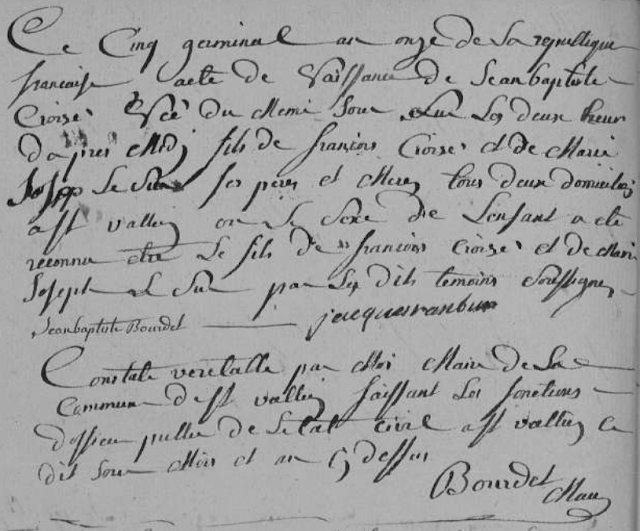 Ce Cinq germinal an onze de la republique
francaise acte de Naissance de Jean baptiste
Croisé Née du Meme Jour sur Les deux heur
d'apres Midj fils de francois Croisé et de Marie
Joseph Le Sur ses peres et Meres tous deux domicilies
a st vallier ou Le Sexe de L'enfant a ete
reconnu etre Le fils de francois Croisé et de Marie
Joseph Le Sur par Les dits temoins Soussignes
Jean baptiste Bourdet jacques
Constaté veritable par Moi Maire de La
Commune de st vallier faissant Les fonctions
d'officier publie de Letat Civil a st vallier Ce
dit Jour Mois et an Cy dessus
Bourdet
Maire